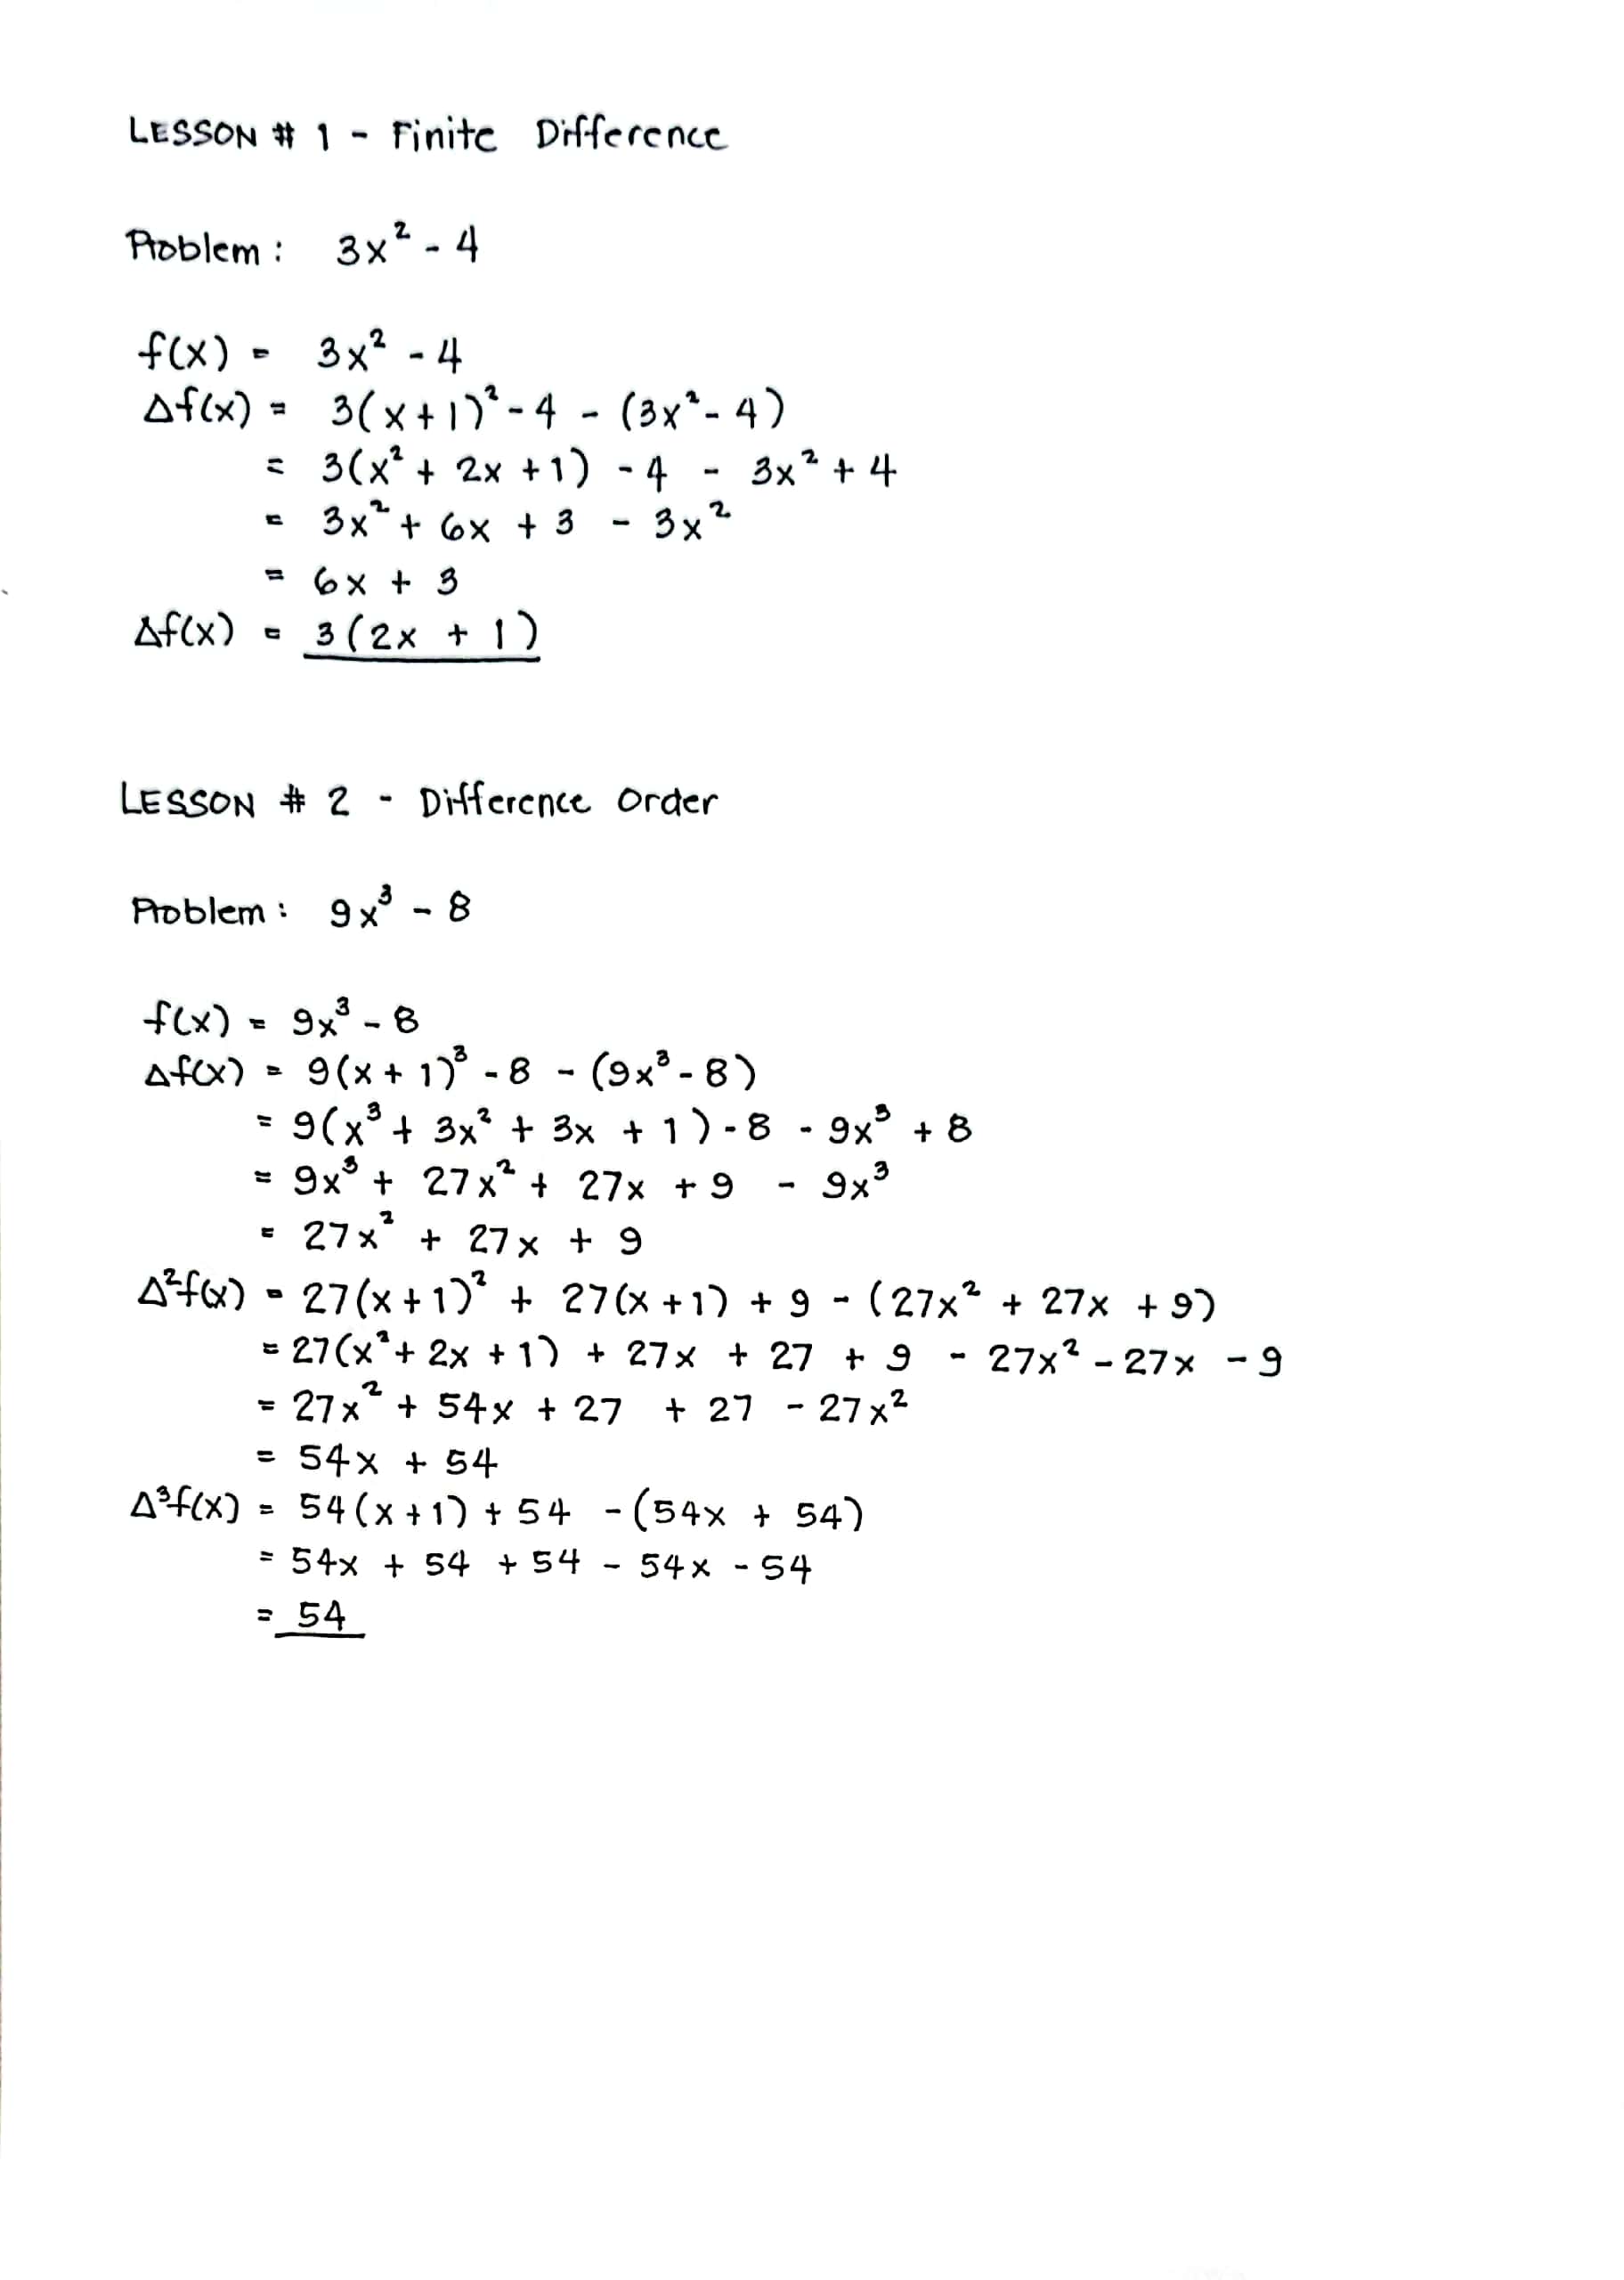 LESSON # 1 - Finite Difference
Problem: 3x² - 4
f(x) = 3x² - 4
Δf(x) = 3(x+1)² - 4 - (3x² - 4)
= 3(x² + 2x + 1) - 4 - 3x² + 4
= 3x² + 6x + 3 - 3x²
= 6x + 3
Δf(x) = 3(2x + 1)
LESSON # 2 - Difference Order
Problem: 9x³ - 8
f(x) = 9x³ - 8
Δf(x) = 9(x + 1)³ - 8 - (9x³ - 8)
= 9(x³ + 3x² + 3x + 1) - 8 - 9x³ + 8
= 9x³ + 27x² + 27x + 9 - 9x³
= 27x² + 27x + 9
Δ²f(x) = 27(x+1)² + 27(x+1) + 9 - (27x² + 27x + 9)
= 27(x² + 2x + 1) + 27x + 27 + 9 - 27x² - 27x - 9
= 27x² + 54x + 27 + 27 - 27x²
= 54x + 54
Δ³f(x) = 54(x+1) + 54 - (54x + 54)
= 54x + 54 + 54 - 54x - 54
= 54